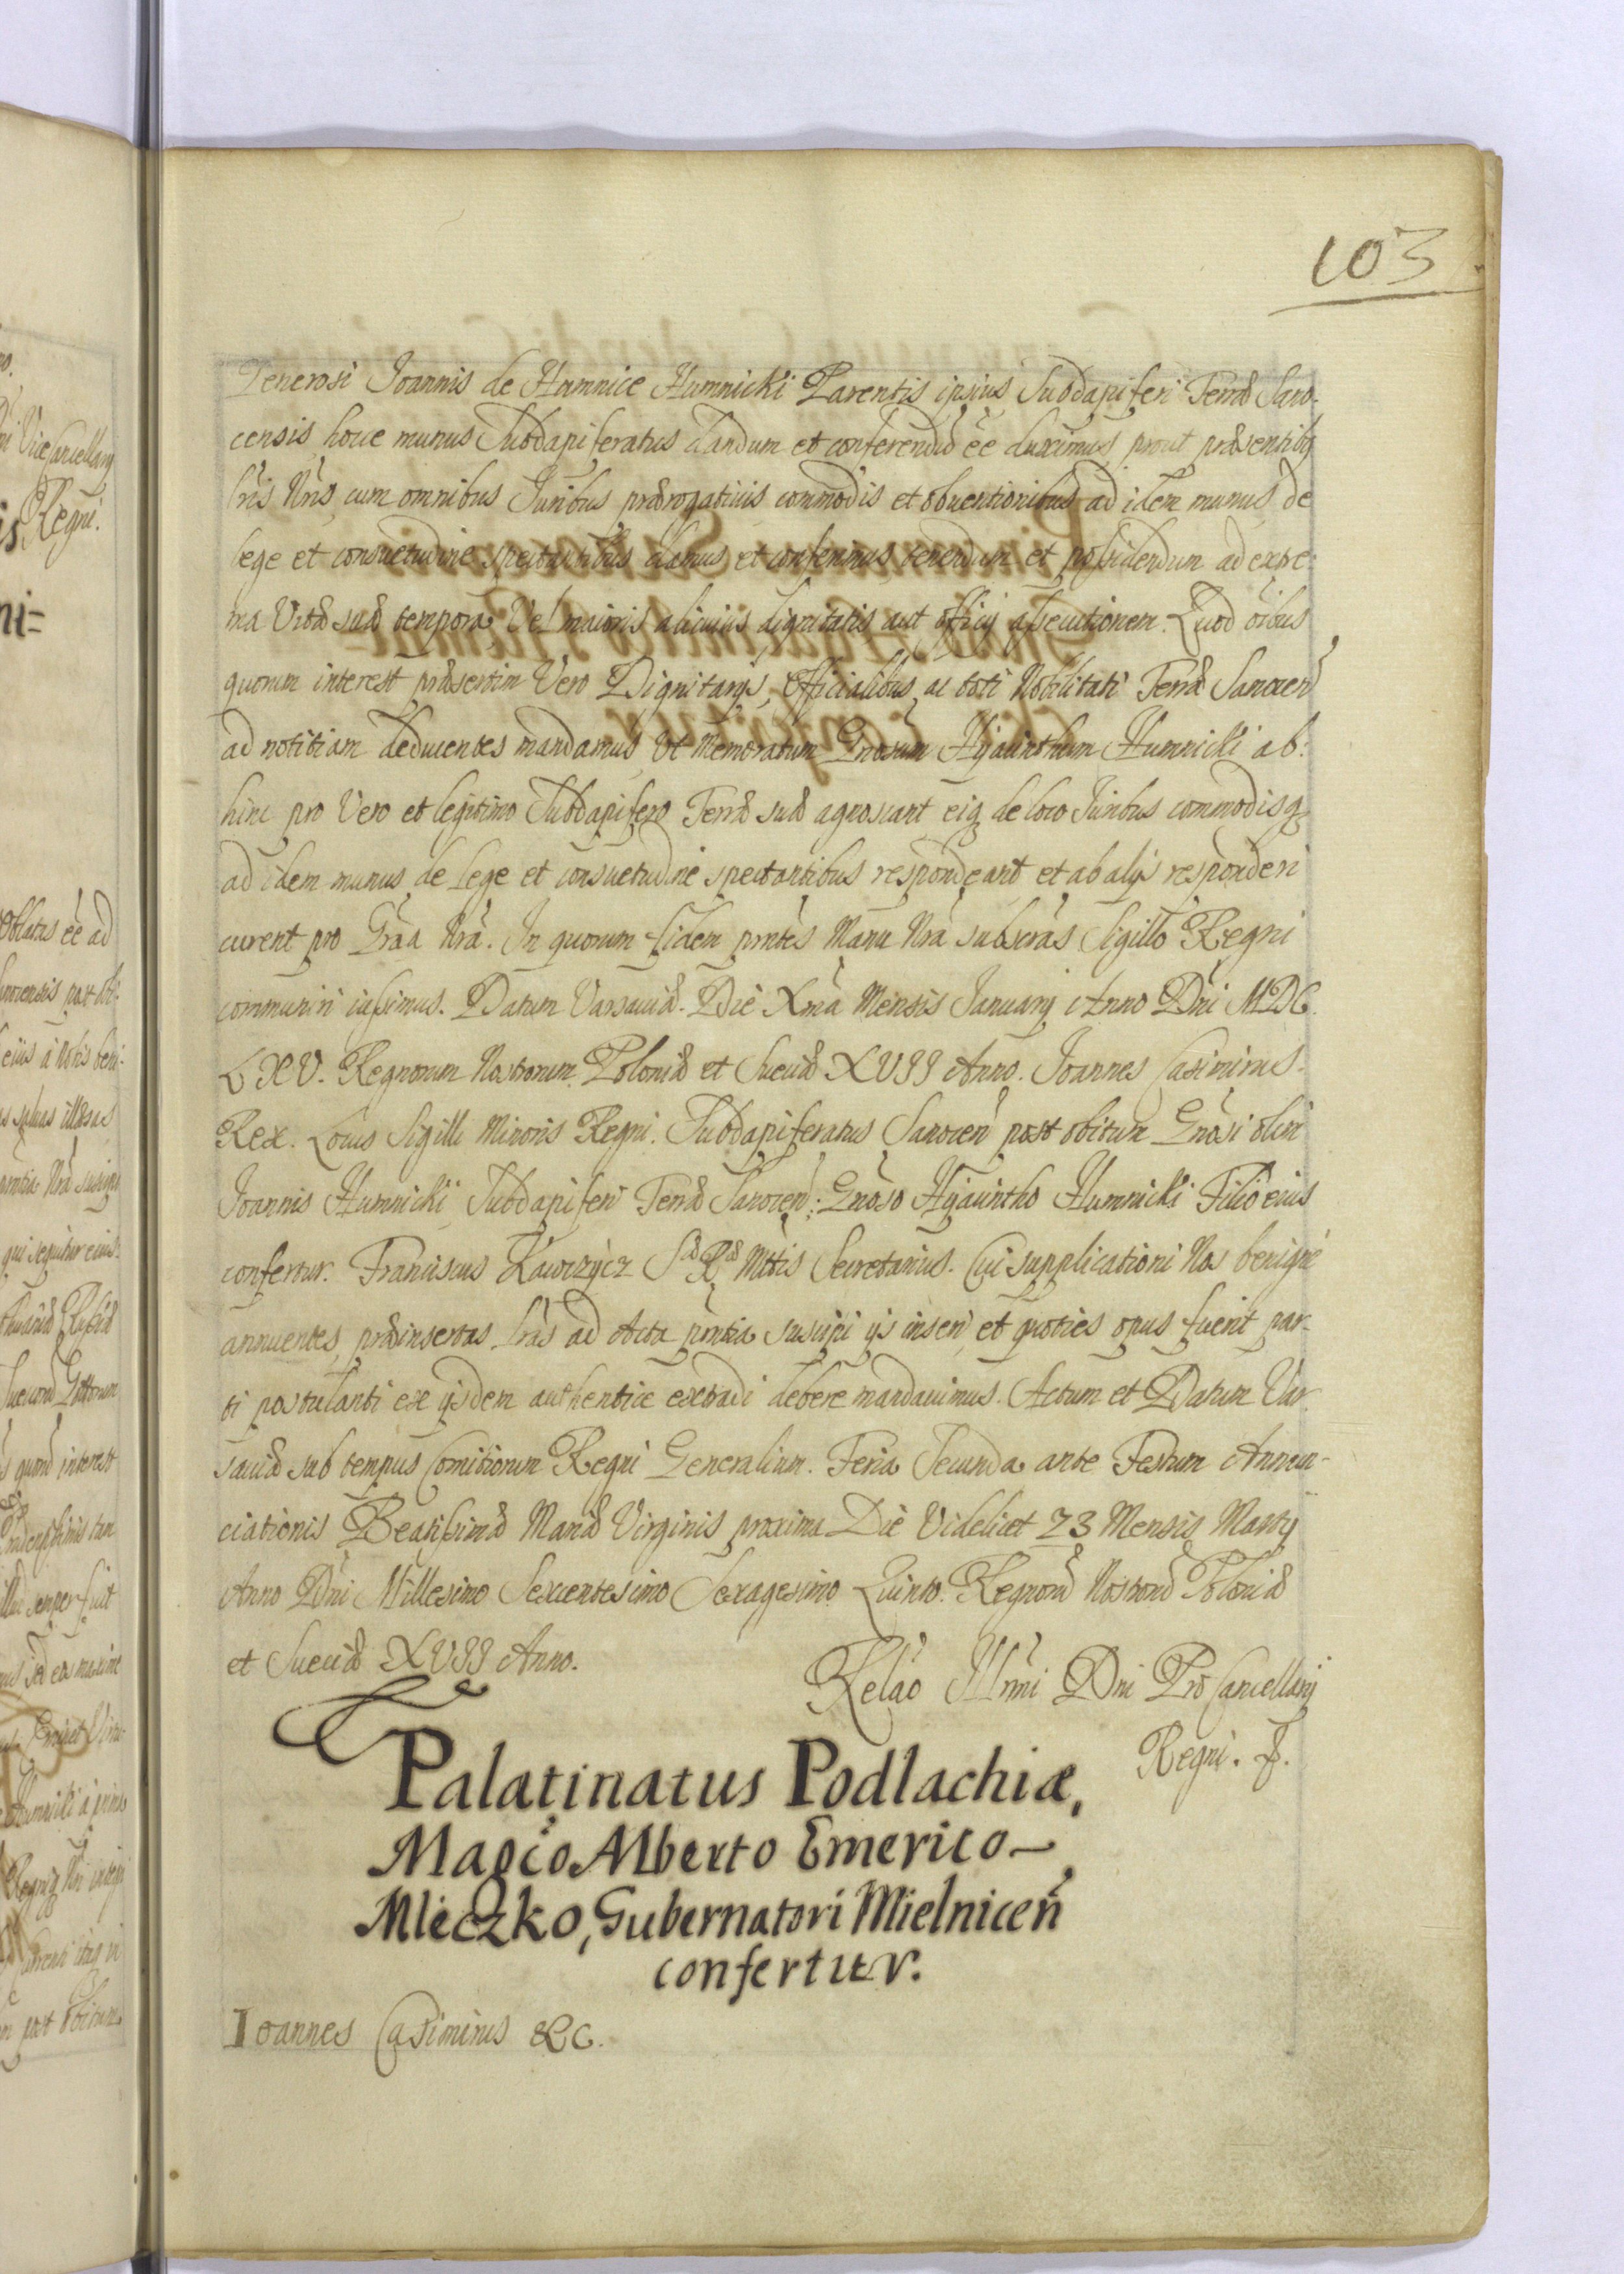 103
Generosi Joannis de Humnice Humnicki Parentis ipsius Subdapiferi Terræ Sano-
censis, hocce munus Subdapiferatus dandum et conferendũ eẽ duximus, prout præsentibg
lrĩs Nrĩs, cum omnibus Juribus, prærogatiuis commodis et obuentionibus ad idem munus de
lege et consuetudine spectantibus damus et conferimus tenendum et possidendum ad extre-
ma Vitæ suæ tempora, Vel maioris alicuius dignitatis aut officij assecutionem. Quod oĩbus
quorum interest, præsertim Vero Dignitarijs, Officialibus, ac toti Nobilitati Terræ Sanocen̄
ad notitiam deducentes mandamus, Vt Memoratum Gnrosum Hijacinthum Humnicki ab-
hinc pro Vero et legitimo Subdapifero Terræ suæ agnoscant, eiq de loco Juribus commodisq
ad idem munus de lege et consuetudine spectantibus respondeant et ab alijs responderi
curent pro Grãa Nrã. In quorum fidem pnte̊s Manu Nrã subscrãs Sigillo Regni
communiri iussimus. Datum Varsauiæ. Die Xma Mensis Januarij Anno Dn̄i MDC.
LXV. Regnorum Nostrorum Poloniæ et Sueciæ XVII Anno. Joannes Casimirus
Rex. Locus Sigilli Minoris Regni. Subdapiferatus Sanocen̄ post obitum Gnrosi olim
Joannis Humnicki Subdapiferi Terræ Sanocen̄: Gnroso Hijacintho Humnicki Filio eius
confertur. Franciscus Ławrzÿcz Sæ Ræ Mttis Secretarius. Cui supplicationi Nos benigne
annuentes, præinsertas lrãs ad Acta pñtia suscipi ijs inseri, et quoties opus fuerit par-
ti postulanti ex ijsdem authentice extradi debere mandauimus. Actum et Datum Var-
sauiæ sub tempus Comitiorum Regni Generalium. Feria Secunda ante Festum Annun-
ciationis Beatissimæ Mariæ Virginis proxima Die Videlicet 23 Mensis Martij
Anno Dn̄i Millesimo Sexcentesimo Sexagesimo Quinto. Regnorũ Nostrorũ Poloniæ
et Sueciæ XVII Anno.
Relão Illrmi Dni Pro Cancellarij
Regni.
Palatinatus Podlachiæ,
Magco Alberto Emerico
Mleczko, Gubernatori Mielnicen̄
confertur.
Ioannes Casimirus &c.